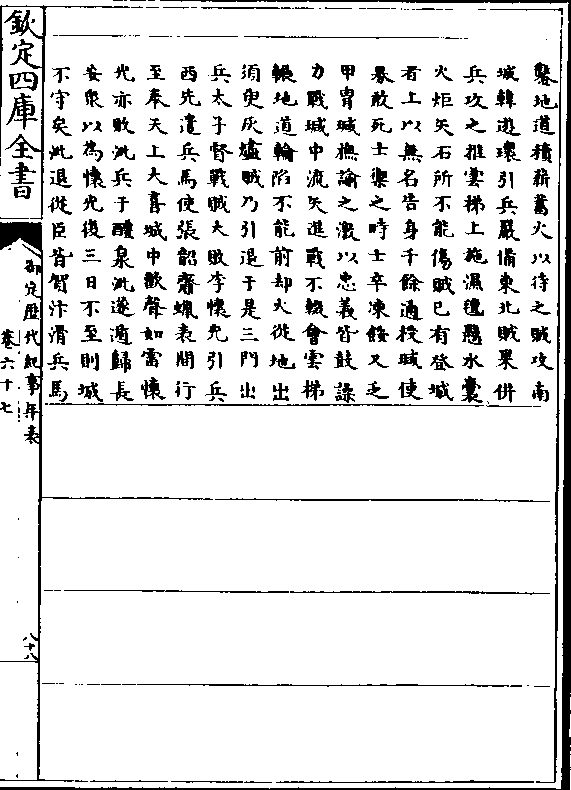 鑿地道積薪蓄火以待之賊攻南
城韓遊瓌引兵嚴備東北賊果併
兵攻之推雲梯上施濕氊懸水囊
火炬矢石所不能傷賊已有登城
者上以無名告身千餘通授瑊使
募敢死士禦之時士卒凍餒又乏
甲冑瑊撫諭之激以忠義皆鼓譟
力戰瑊中流矢進戰不輟會雲梯
輾地道輪陷不能前却火從地出
須臾灰燼賊乃引退于是三門出
兵太子督戰賊大敗李懷光引兵
西先遣兵馬使張韶齎蠟表間行
至奉天上大喜城中歡聲如雷懷
光亦敗泚兵于醴泉泚遂遁歸長
安衆以為懷光復三日不至則城
不守矣泚退從臣皆賀汴滑兵馬
欽定四庫全書
御定歷代紀事年表
卷六十七
八十八